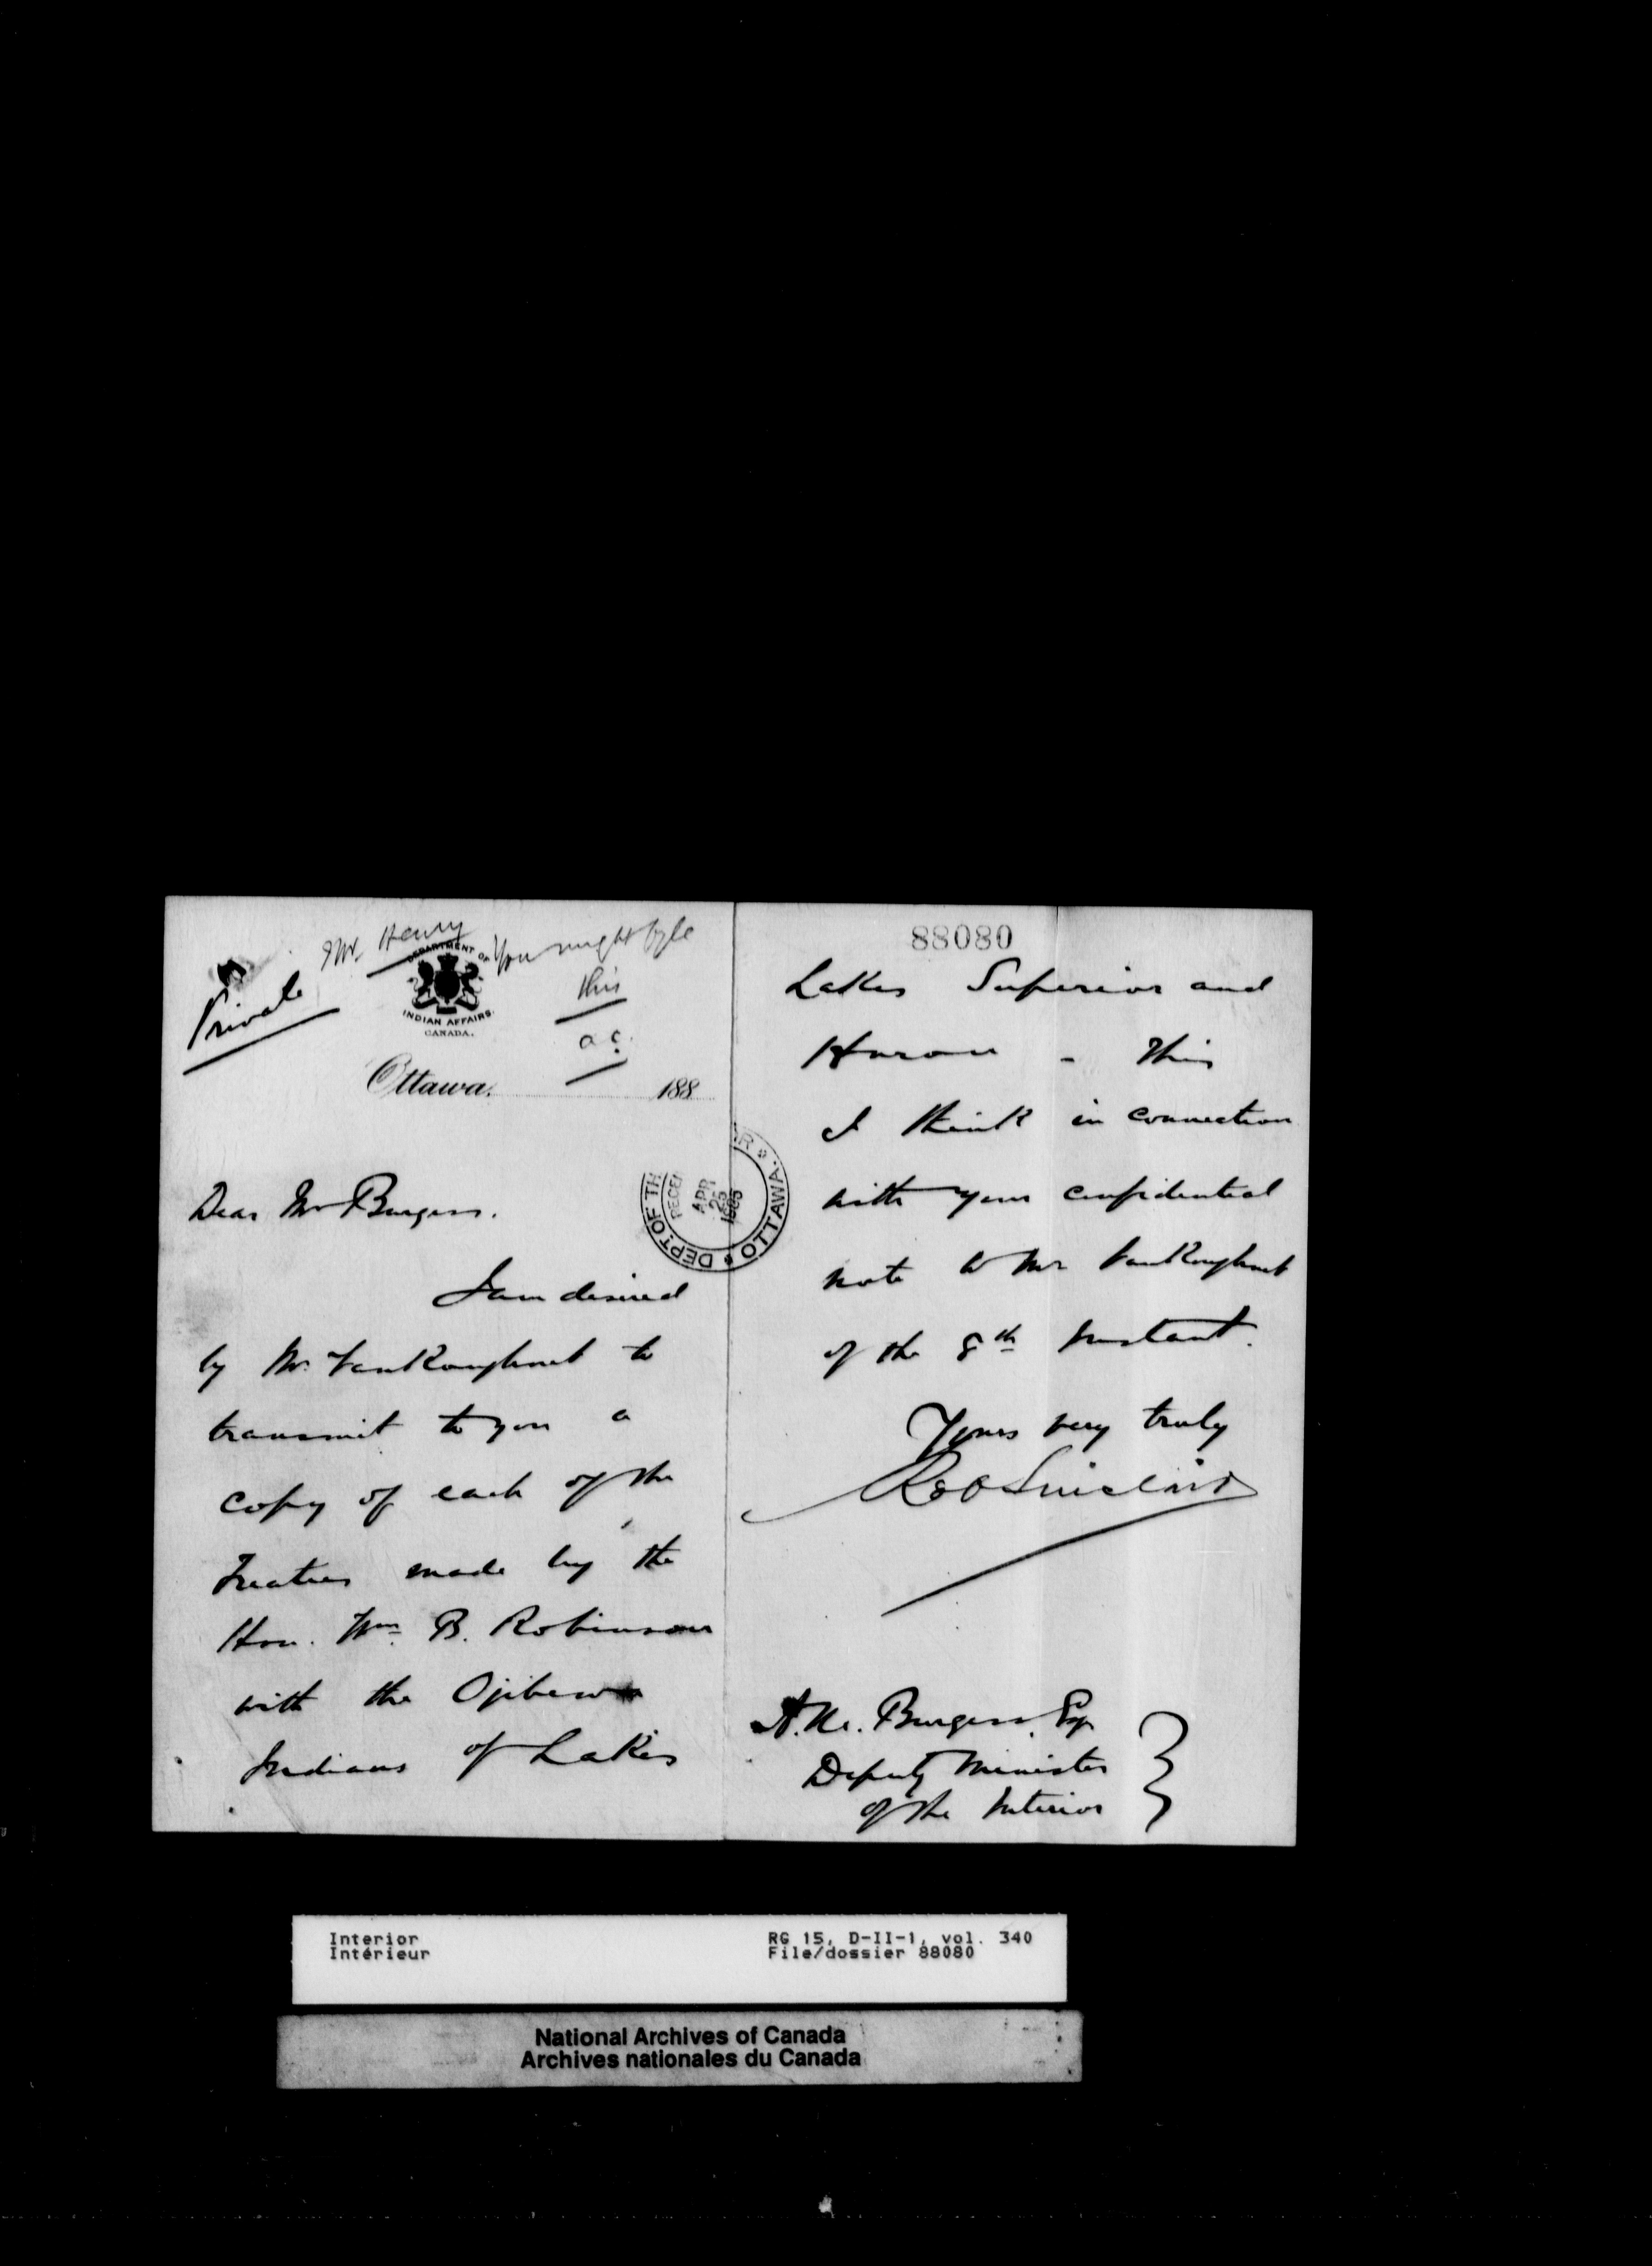 Private
Mr. Henry
You might fyle
this
a c.
DEPARTMENT OF
INDIAN AFFAIRS.
CANADA.
Ottawa, 188
Dear Mr Burgess.
I am desired
by Mr. VanKoughnet to
transmit to you a
copy of each of the
Treaties made by the
Hon. Wm. B. Robinson
with the Ojibewa
Indians of Lakes
DEPT. OF TH R OTTAWA.
RECEI
APR
25
1885
88080
Lakes Superior and
Huron - This
I think in connection
with your confidential
note to Mr VanKoughnet
of the 8th Instant.
Yours very truly
Sinclair
A. M. Burgess, Esq
Deputy Minister
of the Interior
Interior
Intérieur
RG 15, D-II-1, vol. 340
File/dossier 88080
National Archives of Canada
Archives nationales du Canada